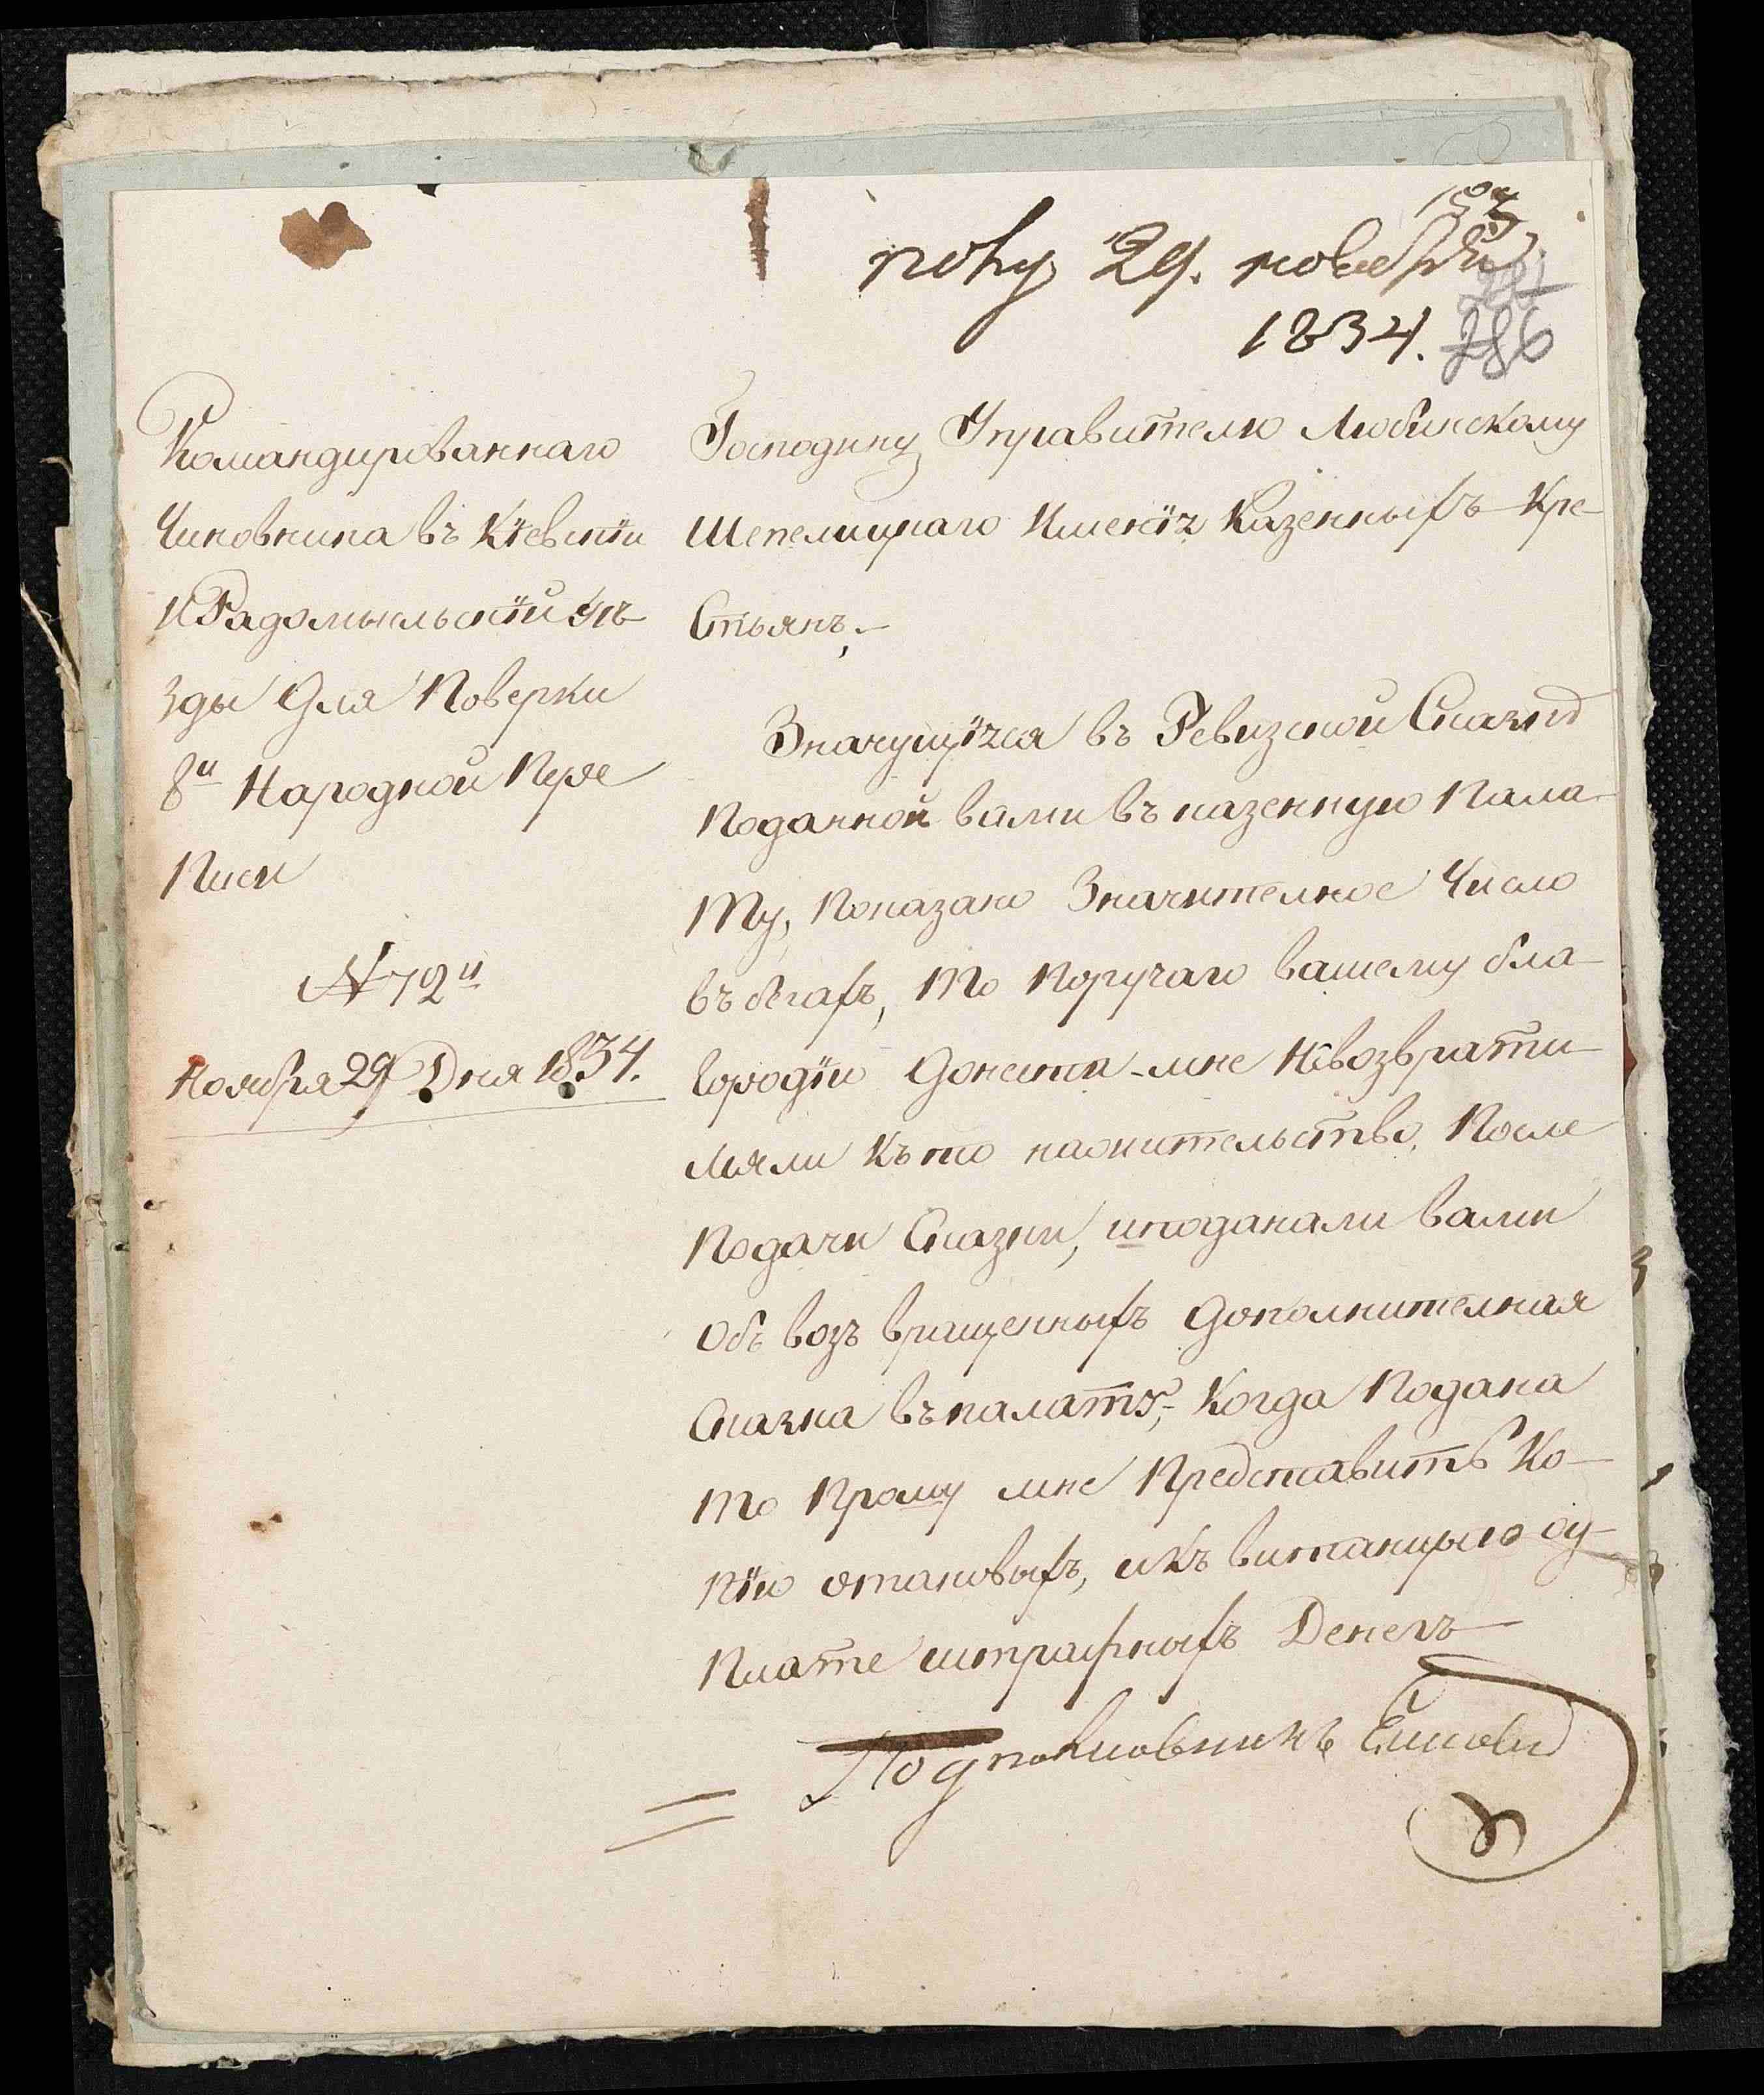 полу 29. ноября
1834.
286
Командированнаго
Чиновника въ Кіевскій
и Радомыльскій уѣ
зды Для Поверки
8й Народной Пере
Писи
№ 72й
Ноября 29 Дня 1834.
Господину Управителю Любинскому
Шепелицкаго Именія Казенныхъ Кре-
Стьянъ,-
Значущихся въ Ревизской Сказке
Поданной вами въ казенную Пала-
Ту, Показано Значителное Число
въ бегахъ, То Поручаю вашему бла-
городію Донести мне Невозврати-
Мяли Къто нажительство, После
Подачи Сказки, иподанали вами
Объ возъ вращенныхъ Дополнителная
Сказка въ палату,- Когда Подана
То Прошу мне Представить Ко-
Пію отаковыхъ, икъ витанцыю оу-
Плате штрафныхъ Денегъ
Подполковникъ